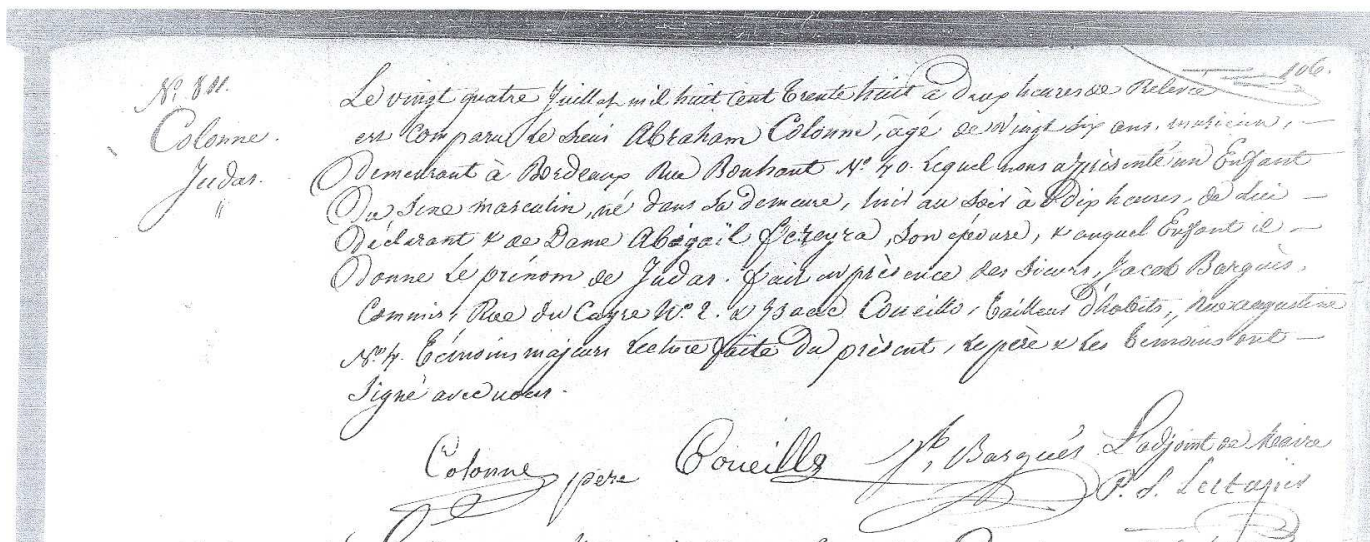 106.
N° 811.
Colonne.
Judas.
Le vingt quatre Juillet mil huit Cent trente huit à deux heures de Relevée
est Comparu le Sieur Abraham Colonne, âgé de vingt six ans, musicien, —
Demeurant à Bordeaux Rue Bouhaut N° 40. Lequel nous a présenté un Enfant
Du Sexe masculin, né dans sa demeure, hier au Soir à Dix heures, de lui —
Déclarant & de Dame Abigaïl Pereyra, son épouse, & auquel Enfant il —
Donne le prénom de Judas. fait en présence des Sieurs, Jacob Barguès,
Commis, Rue du Cayre N° 2. & Isaac Coueille, tailleur D'habits, rue augustine
N° 4. témoins majeurs Lecture faite Du présent, le père & les témoins ont —
Signé avec nous.
Colonne père Coueille Jb. Barguès L'adjoint de Maire